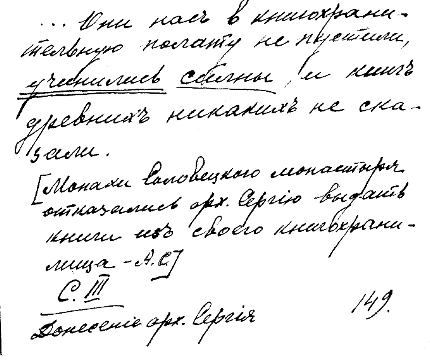 ... Они насъ в книгохрани-
тельную полату не пустили,
учинились силны, и книгъ
древнихъ никакихъ не ска-
зали.
[Монахи Соловецкого монастыря
отказались арх. Сергію выдать
книги изъ своего книгохрани-
лища - А.С.]
С. III
Донесеніе арх. Сергія 149.